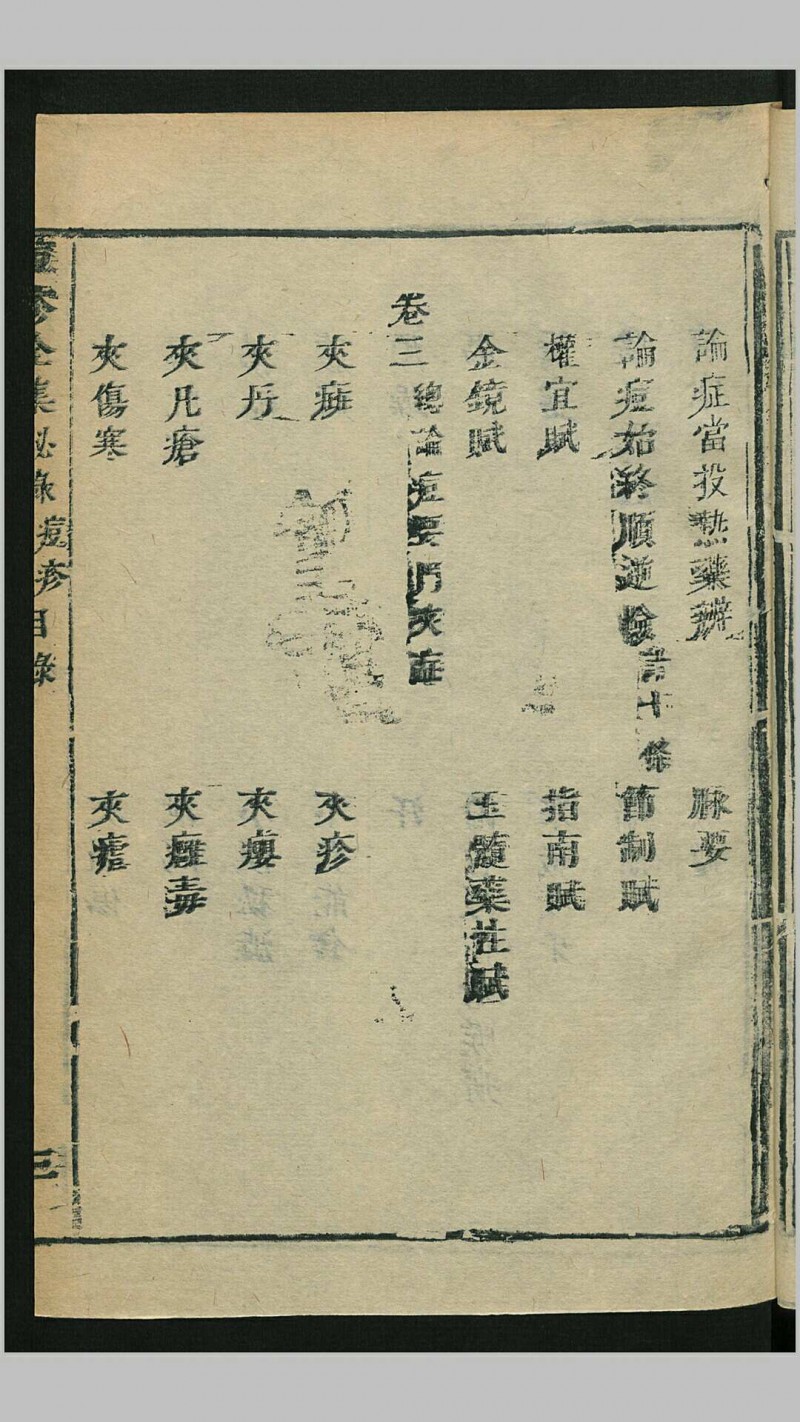 論症當投熱藥辨　脉要
論痘始終順逆險書十條　節制賦
權宜賦　指南賦
金鏡賦　玉髓藥性賦
卷三　總論痘要門夾症
夾癍　夾疹
夾丹　夾癭
夾凡瘡　夾癰毒
夾傷寒　夾瘧
痘疹全集秘錄　痘疹目錄　三